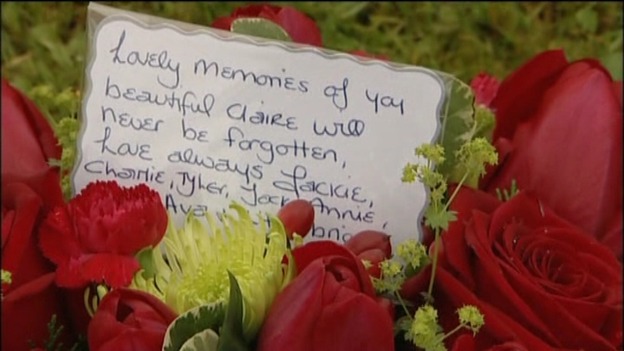 Lovely memories of you
beautiful Claire will
never be forgotten,
Love always Jackie,
Charlie, Tyler, Jack, Annie,
Ava